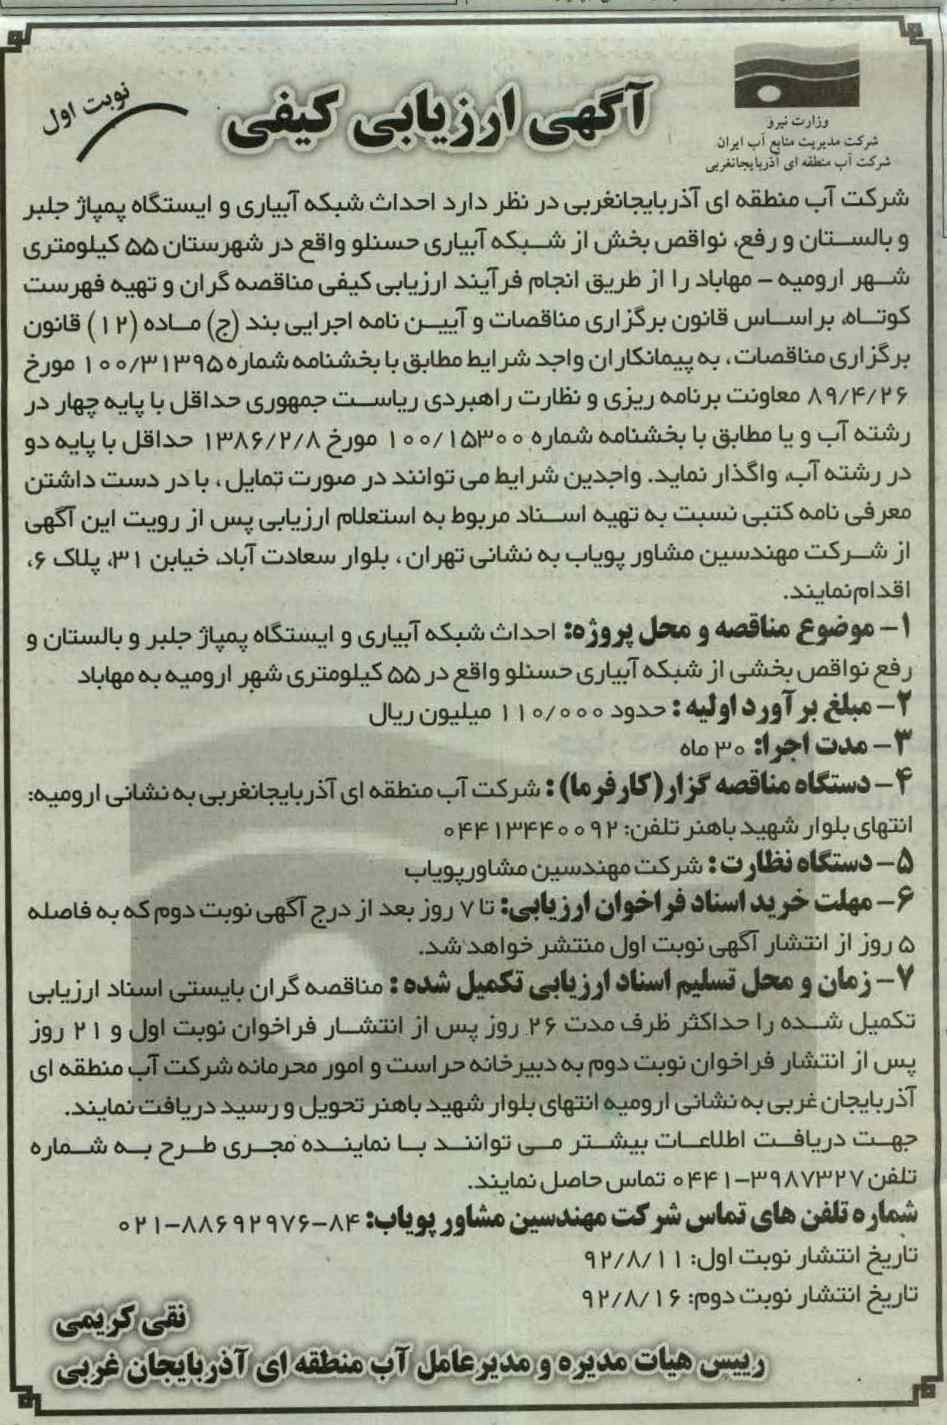 نوبت اول
آگهی ارزیابی کیفی
وزارت نیرو
شرکت مدیریت منابع آب ایران
شرکت آب منطقه ای آذربایجانغربی
شرکت آب منطقه ای آذربایجانغربی در نظر دارد احداث شبکه آبیاری و ایستگاه پمپاژ جلبر
و بالستان و رفع، نواقص بخش از شبکه آبیاری حسنلو واقع در شهرستان ۵۵ کیلومتری
شهر ارومیه – مهاباد را از طریق انجام فرآیند ارزیابی کیفی مناقصه گران و تهیه فهرست
کوتاه، براساس قانون برگزاری مناقصات و آیین نامه اجرایی بند (ج) ماده (۱۲) قانون
برگزاری مناقصات، به پیمانکاران واجد شرایط مطابق با بخشنامه شماره ۱۰۰/۳۱۳۹۵ مورخ
۸۹/۴/۲۶ معاونت برنامه ریزی و نظارت راهبردی ریاست جمهوری حداقل با پایه چهار در
رشته آب و یا مطابق با بخشنامه شماره ۱۰۰/۱۵۳۰۰ مورخ ۱۳۸۶/۲/۸ حداقل با پایه دو
در رشته آب، واگذار نماید. واجدین شرایط می توانند در صورت تمایل، با در دست داشتن
معرفی نامه کتبی نسبت به تهیه اسناد مربوط به استعلام ارزیابی پس از رویت این آگهی
از شرکت مهندسین مشاور پویاب به نشانی تهران، بلوار سعادت آباد، خیابن ۳۱، پلاک ۶،
اقدام نمایند.
۱- موضوع مناقصه و محل پروژه: احداث شبکه آبیاری و ایستگاه پمپاژ جلبر و بالستان و
رفع نواقص بخشی از شبکه آبیاری حسنلو واقع در ۵۵ کیلومتری شهر ارومیه به مهاباد
۲- مبلغ برآورد اولیه: حدود ۱۱۰/۰۰۰ میلیون ریال
۳- مدت اجرا: ۳۰ ماه
۴- دستگاه مناقصه گزار(کارفرما): شرکت آب منطقه ای آذربایجانغربی به نشانی ارومیه:
انتهای بلوار شهید باهنر تلفن: ۰۴۴۱۳۴۴۰۰۹۲
۵- دستگاه نظارت: شرکت مهندسین مشاورپویاب
۶- مهلت خرید اسناد فراخوان ارزیابی: تا ۷ روز بعد از درج آگهی نوبت دوم که به فاصله
۵ روز از انتشار آگهی نوبت اول منتشر خواهد شد.
۷- زمان و محل تسلیم اسناد ارزیابی تکمیل شده: مناقصه گران بایستی اسناد ارزیابی
تکمیل شده را حداکثر ظرف مدت ۲۶ روز پس از انتشار فراخوان نوبت اول و ۲۱ روز
پس از انتشار فراخوان نوبت دوم به دبیرخانه حراست و امور محرمانه شرکت آب منطقه ای
آذربایجان غربی به نشانی ارومیه انتهای بلوار شهید باهنر تحویل و رسید دریافت نمایند.
جهت دریافت اطلاعات بیشتر می توانند با نماینده مجری طرح به شماره
تلفن ۳۹۸۷۳۲۷-۰۴۴۱ تماس حاصل نمایند.
شماره تلفن های تماس شرکت مهندسین مشاور پویاب: ۸۴-۸۸۶۹۲۹۷۶-۰۲۱
تاریخ انتشار نوبت اول: ۹۲/۸/۱۱
تاریخ انتشار نوبت دوم: ۹۲/۸/۱۶
نقی کریمی
رییس هیات مدیره و مدیرعامل آب منطقه ای آذربایجان غربی